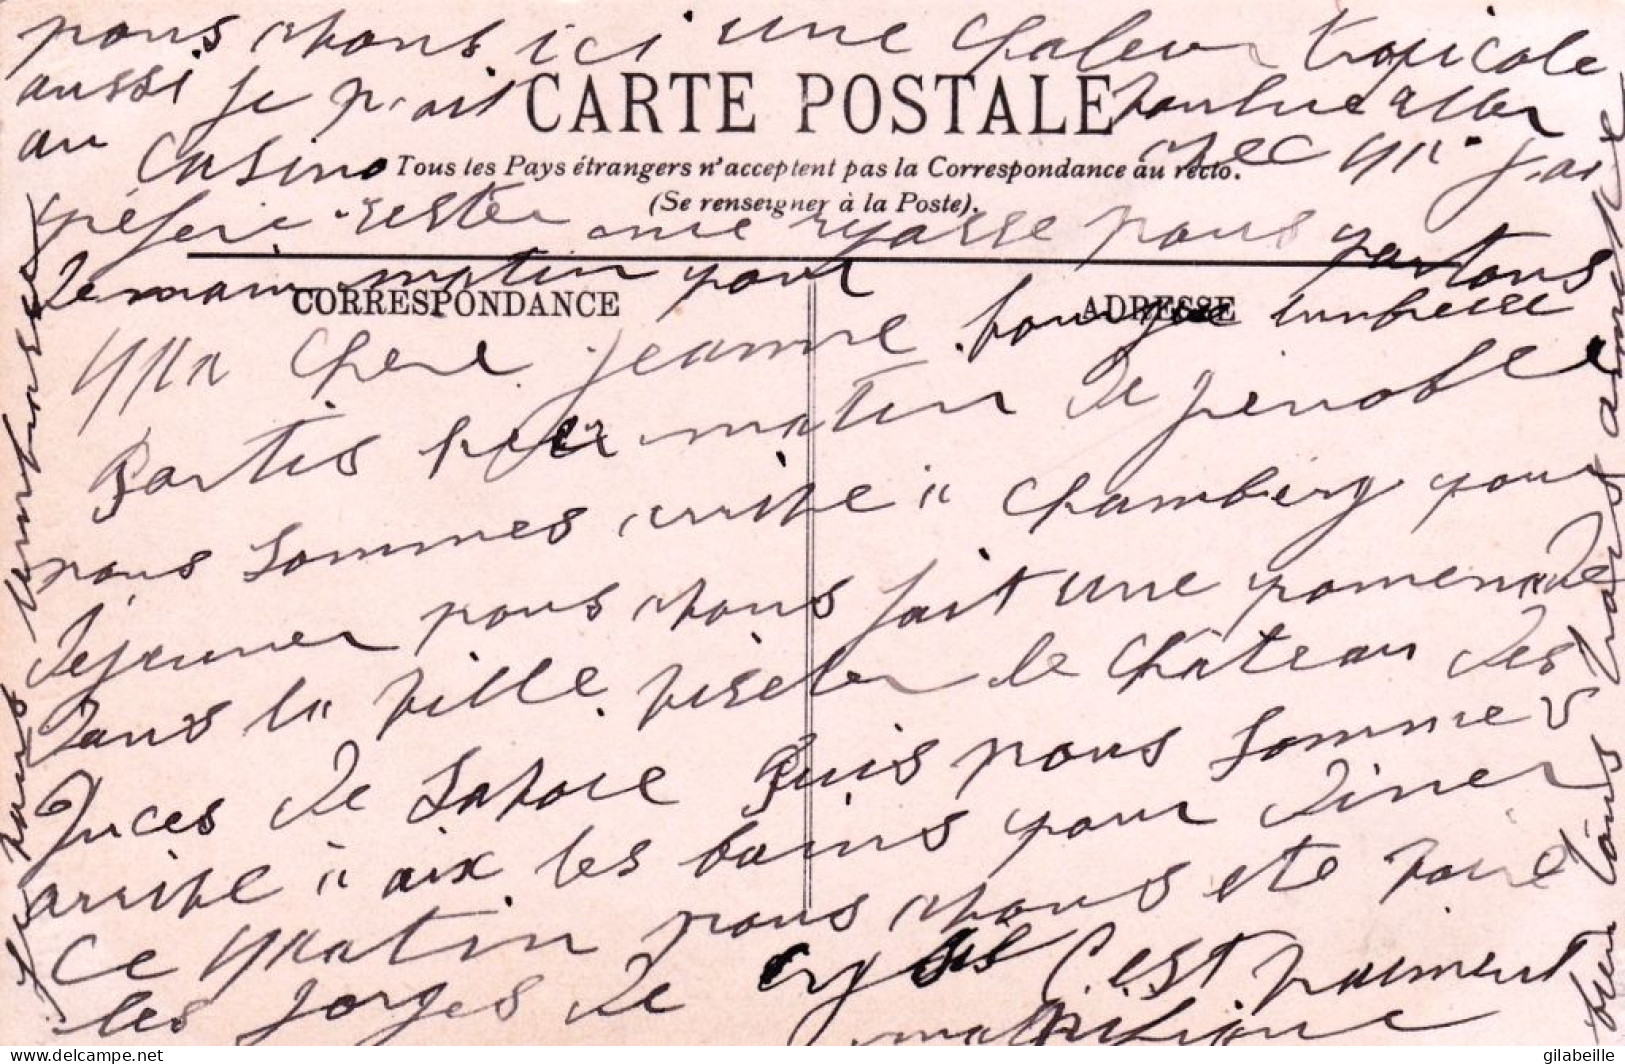 Ma chere Jeanne
Partis hier matin de grenoble
nous sommes arrive a Chambery pour
dejeuner nous avons fait une promenade
dans la ville visiter le Château des
Duces de Savoie Puis nous sommes
arrive a aix les bains pour diner
Ce Matin nous avons ete voire
les gorges de C'est vraiment
magnifique
nous avons ici une Chaleur tropicale
aussi je n'ait voulue aller
au Casino avec Mr j'ai
préferé rester me repasse nous partons
demain matin pour
Je vous
bien tous trais
CARTE POSTALE
Tous les Pays étrangers n'acceptent pas la Correspondance au recto.
(Se renseigner à la Poste).
CORRESPONDANCE
ADRESSE
gilabeille